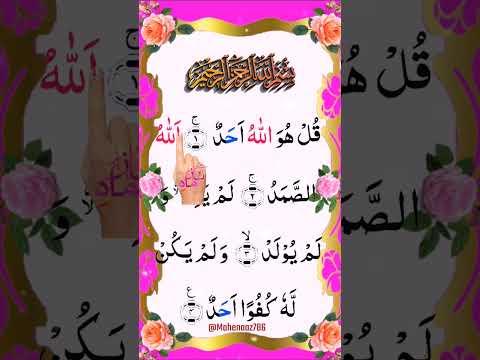 بسم الله الرحمن الرحيم
قُلْ هُوَ اللّٰهُ اَحَدٌ ۚ﴿۱﴾ اَللّٰهُ
الصَّمَدُ ۚ﴿۲﴾ لَمْ
لَمْ يُوْلَدْ ۙ﴿۳﴾ وَلَمْ يَكُنْ
لَّهٗ كُفُوًا اَحَدٌ ۧ﴿۴﴾
@Mahenaaz786